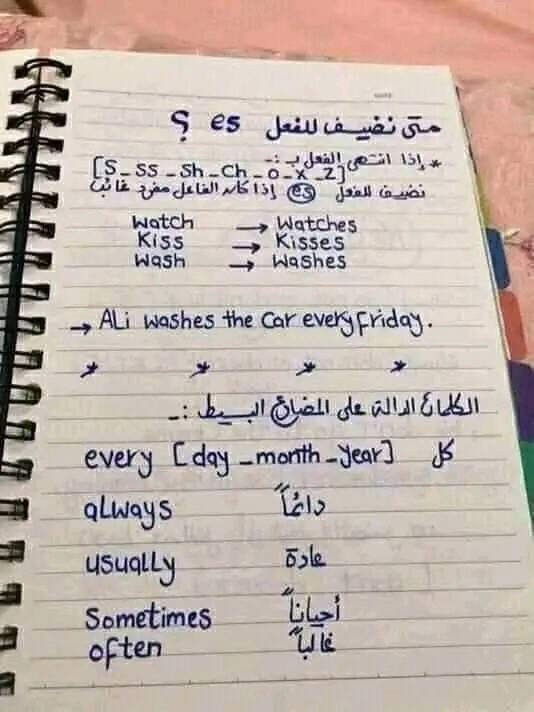 متى نضيف للفعل es ؟
* إذا انتهى الفعل بـ :-
[S_SS_Sh_Ch_O_X_Z]
نضيف للفعل es إذا كان الفاعل مفرد غائب
Watch → Watches
Kiss → Kisses
Wash → Washes
→ ALi washes the Car every friday.
* * * *
الكلمات الدالة على المضارع البسيط :-
every [day_month_year] كل
always دائماً
usually عادة
Sometimes أحياناً
often غالباً